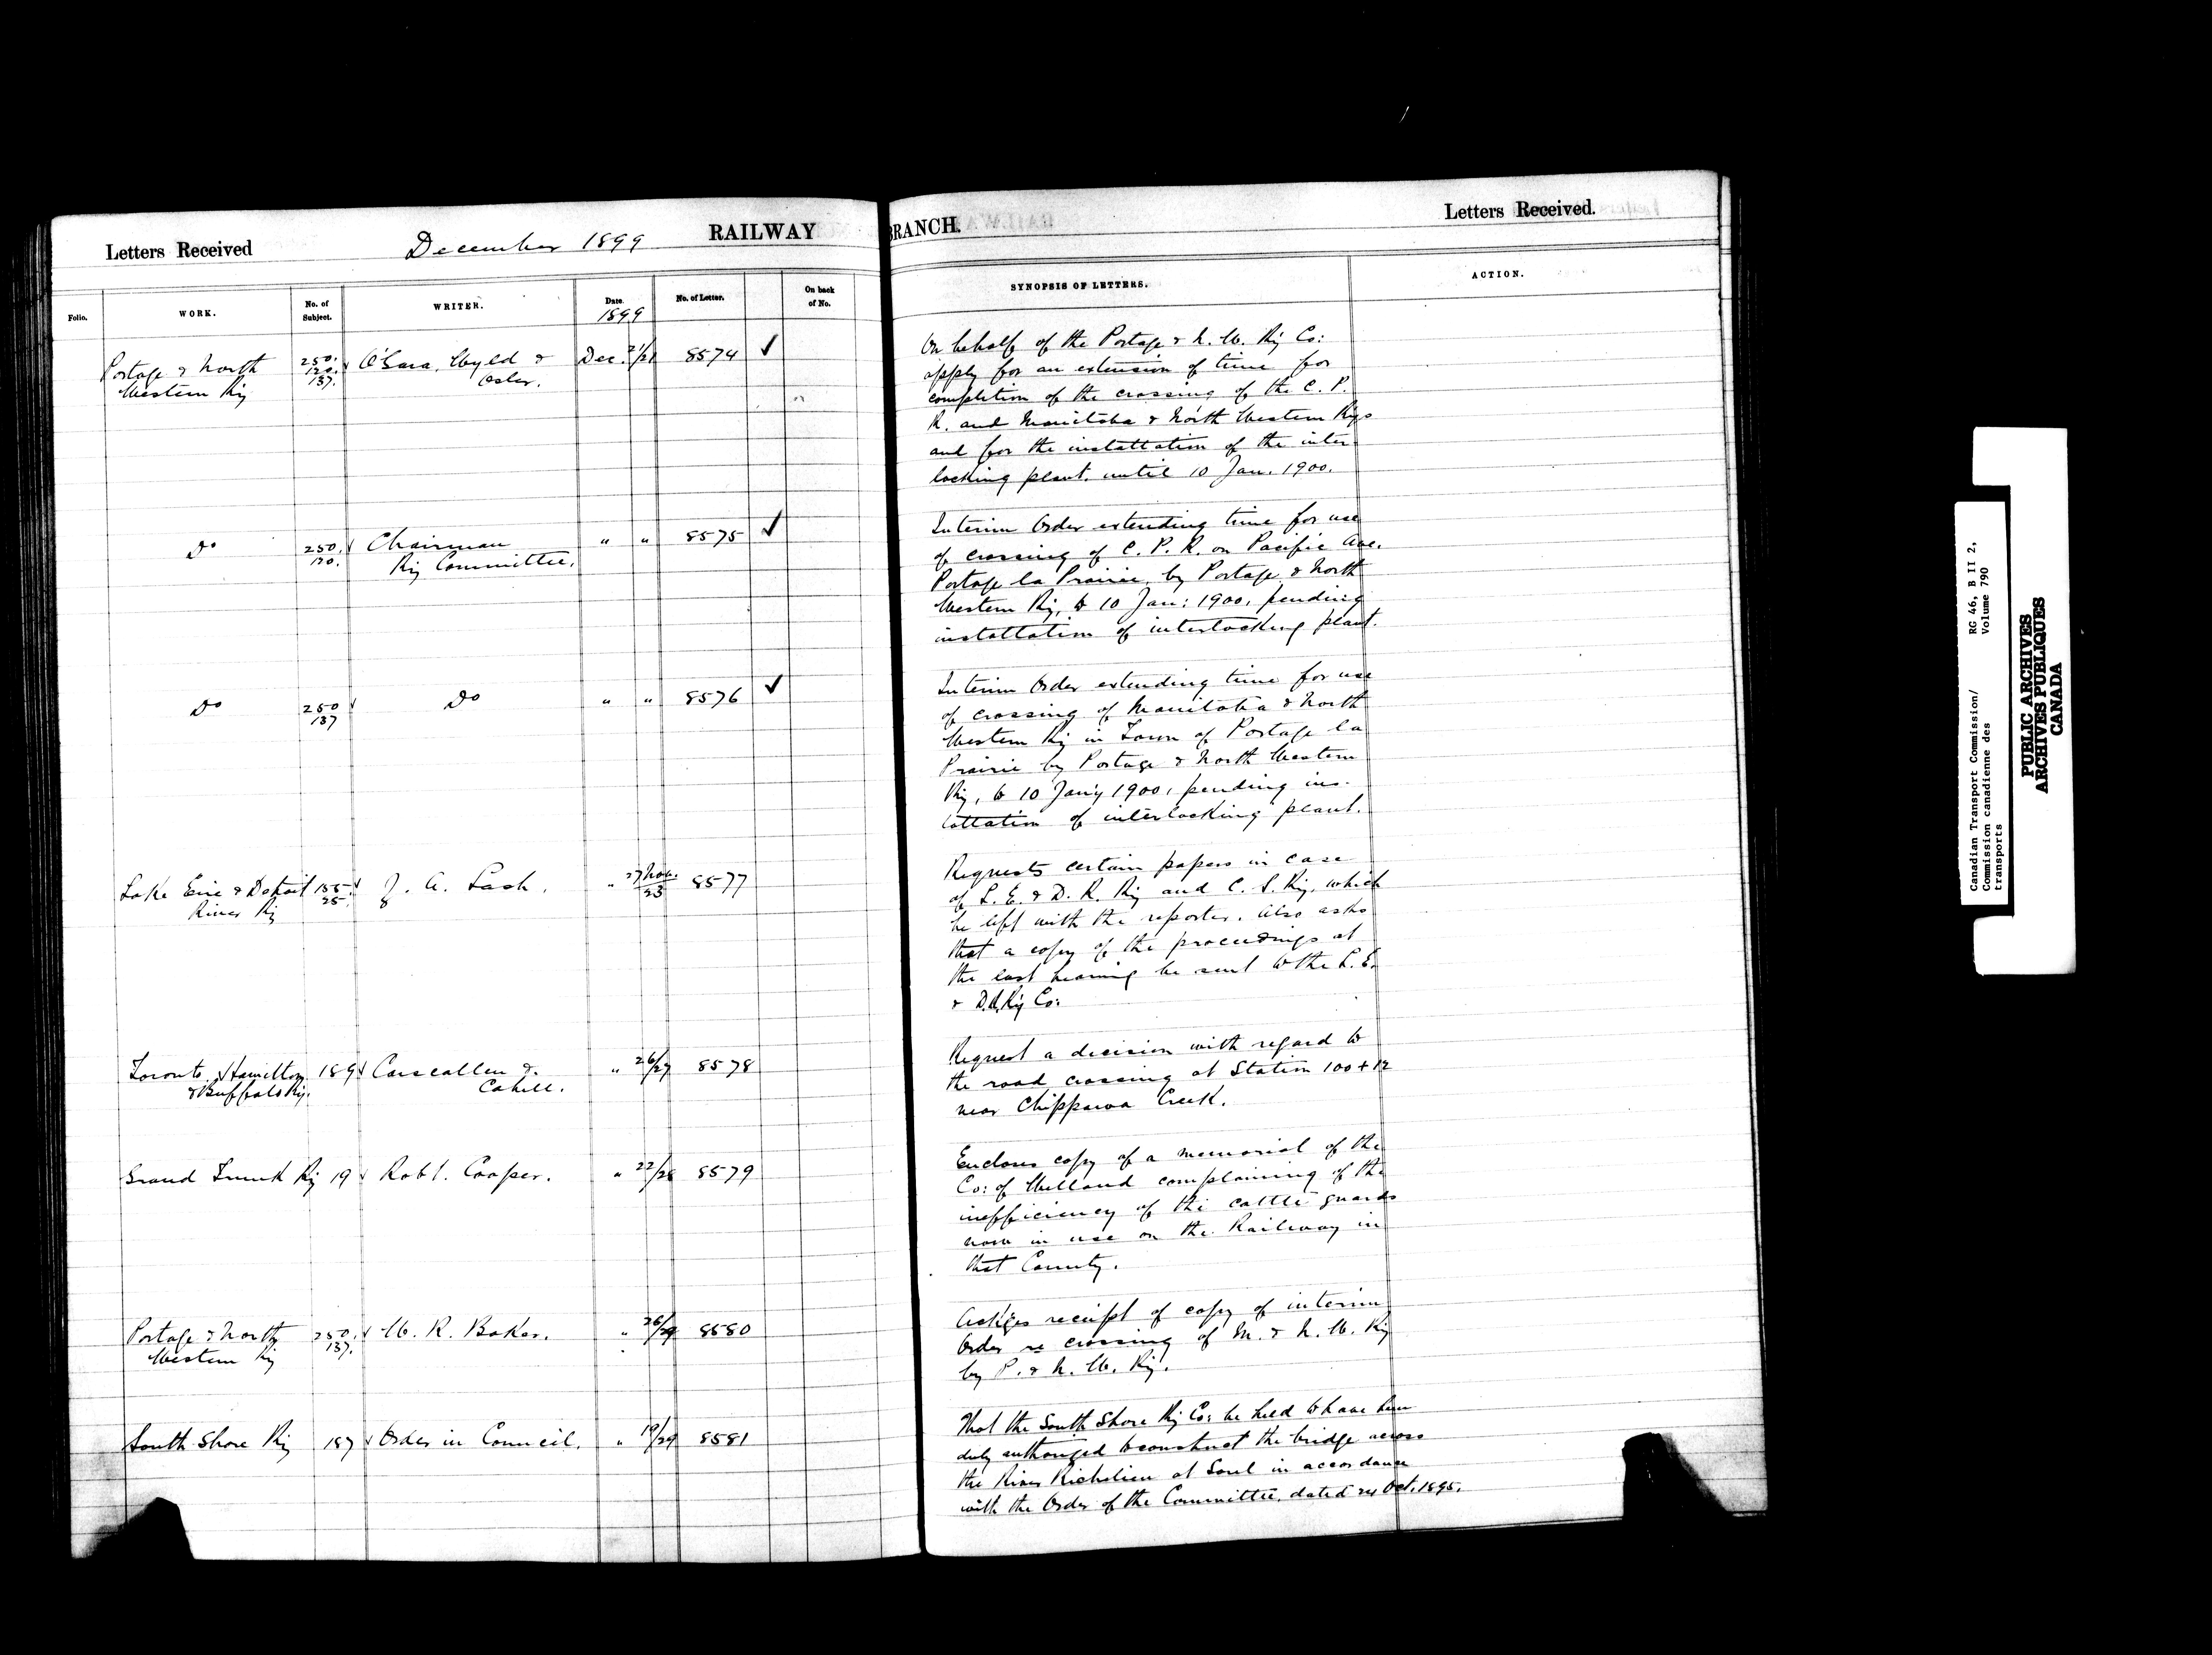 Letters Received
December 1899
RAILWAY BRANCH.
Letters Received.
Folio. WORK. No. of Subject. WRITER. Date. 1899 No. of Letter. On back of No. SYNOPSIS OF LETTERS. ACTION.
Portage & North
Western Ry
250.
120.
137.
O'Gara, Wyld &
Osler.
Dec. 21/21 8574 ✓
On behalf of the Portage & N. W. Ry Co:
apply for an extension of time for
completion of the crossing of the C. P.
R. and Manitoba & North Western Rys
and for the installation of the inter
locking plant, until 10 Jan. 1900.
Do
250.
120.
Chairman
Ry Committee.
" " 8575 ✓
Interim Order extending time for use
of crossing of C. P. R. on Pacific Ave.
Portage la Prairie, by Portage & North
Western Ry, to 10 Jan: 1900, pending
installation of interlocking plant.
Do
250
137
Do
" " 8576 ✓
Interim Order extending time for use
of crossing of Manitoba & North
Western Ry in Town of Portage la
Prairie by Portage & North Western
Ry, to 10 Jan'y 1900, pending ins-
tallation of interlocking plant.
Lake Erie & Detroit
River Ry
155.
25.
Z. A. Lash.
" 27 Nov./23 8577
Requests certain papers in case
of L. E. & D. R. Ry and C. S. Ry, which
he left with the reporter. Also asks
that a copy of the proceedings at
the last hearing be sent to the L. E.
& D. R. Ry Co:
Toronto, Hamilton
& Buffalo Ry.
189
Carscallen &
Cahill.
" 26/27 8578
Request a decision with regard to
the road crossing at Station 100 + 12
near Chippawa Creek.
Grand Trunk Ry 19 Robt. Cooper. " 22/28 8579
Encloses copy of a memorial of the
Co: of Welland complaining of the
inefficiency of the cattle guards
now in use on the Railway in
that County.
Portage & North
Western Ry
250.
137.
W. R. Baker.
" 26/29 8580
Acklges receipt of copy of interim
Order re crossing of M. & N. W. Ry
by P. & N. W. Ry.
South Shore Ry 187 Order in Council. " 19/29 8581
That the South Shore Ry Co: be held to have been
duly authorized to construct the bridge across
the River Richelieu at Sorel in accordance
with the Order of the Committee, dated Oct. 1895.
Canadian Transport Commission/ RG 46, B II 2,
Commission canadienne des Volume 790
transports
PUBLIC ARCHIVES
ARCHIVES PUBLIQUES
CANADA